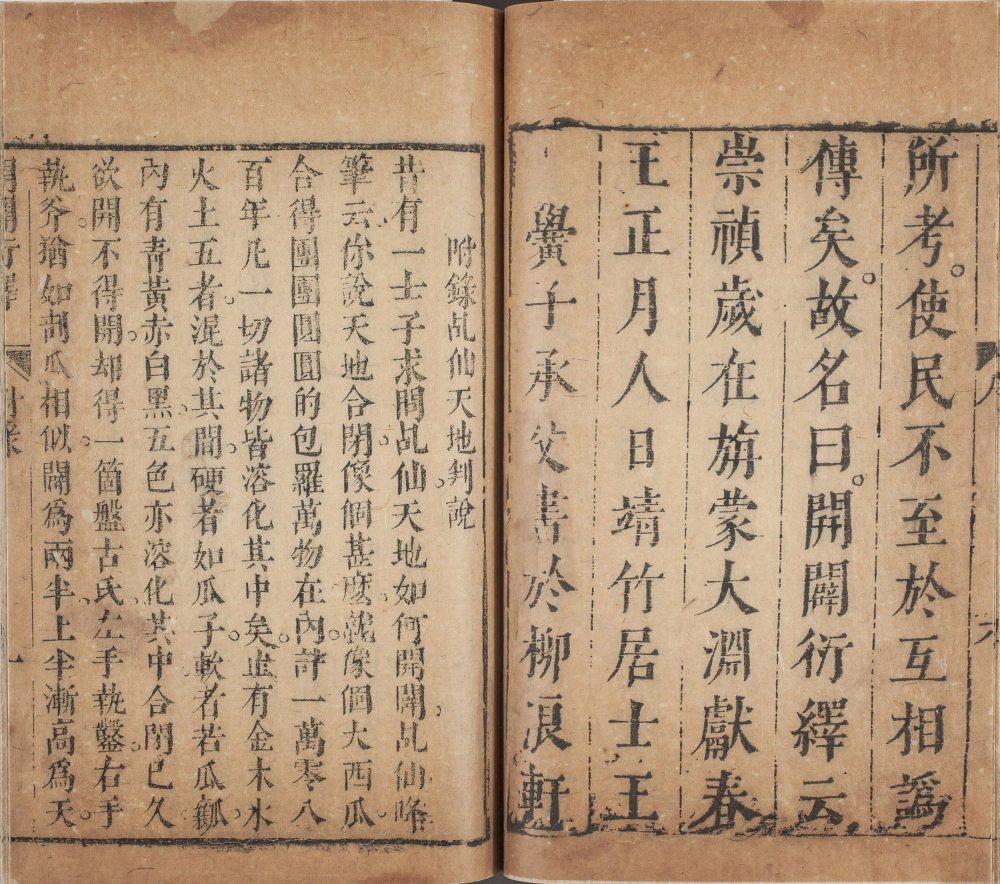 所考。使民不至於互相譌
傳矣。故名曰。開闢衍繹云
崇禎歲在旃蒙大淵獻春
王正月人日靖竹居士王
黌子承父書於柳浪軒
附錄乩仙天地判說
昔有一士子求問乩仙。天地如何開闢。乩仙降
筆云。你說天地合閉。像個甚麼。就像個大西瓜。
合得團團圓圓的。包羅萬物在內。計一萬零八
百年。凡一切諸物。皆溶化其中矣。止有金木水
火土五者。混於其間。硬者如瓜子。軟者若瓜瓤。
內有青黃赤白黑。五色亦溶化其中。合閉已久。
欲開不得開。却得一箇盤古氏。左手執鑿。右手
執斧。猶如剖瓜相似。闢為兩半。上半漸高為天
開闢衍繹 附錄 一